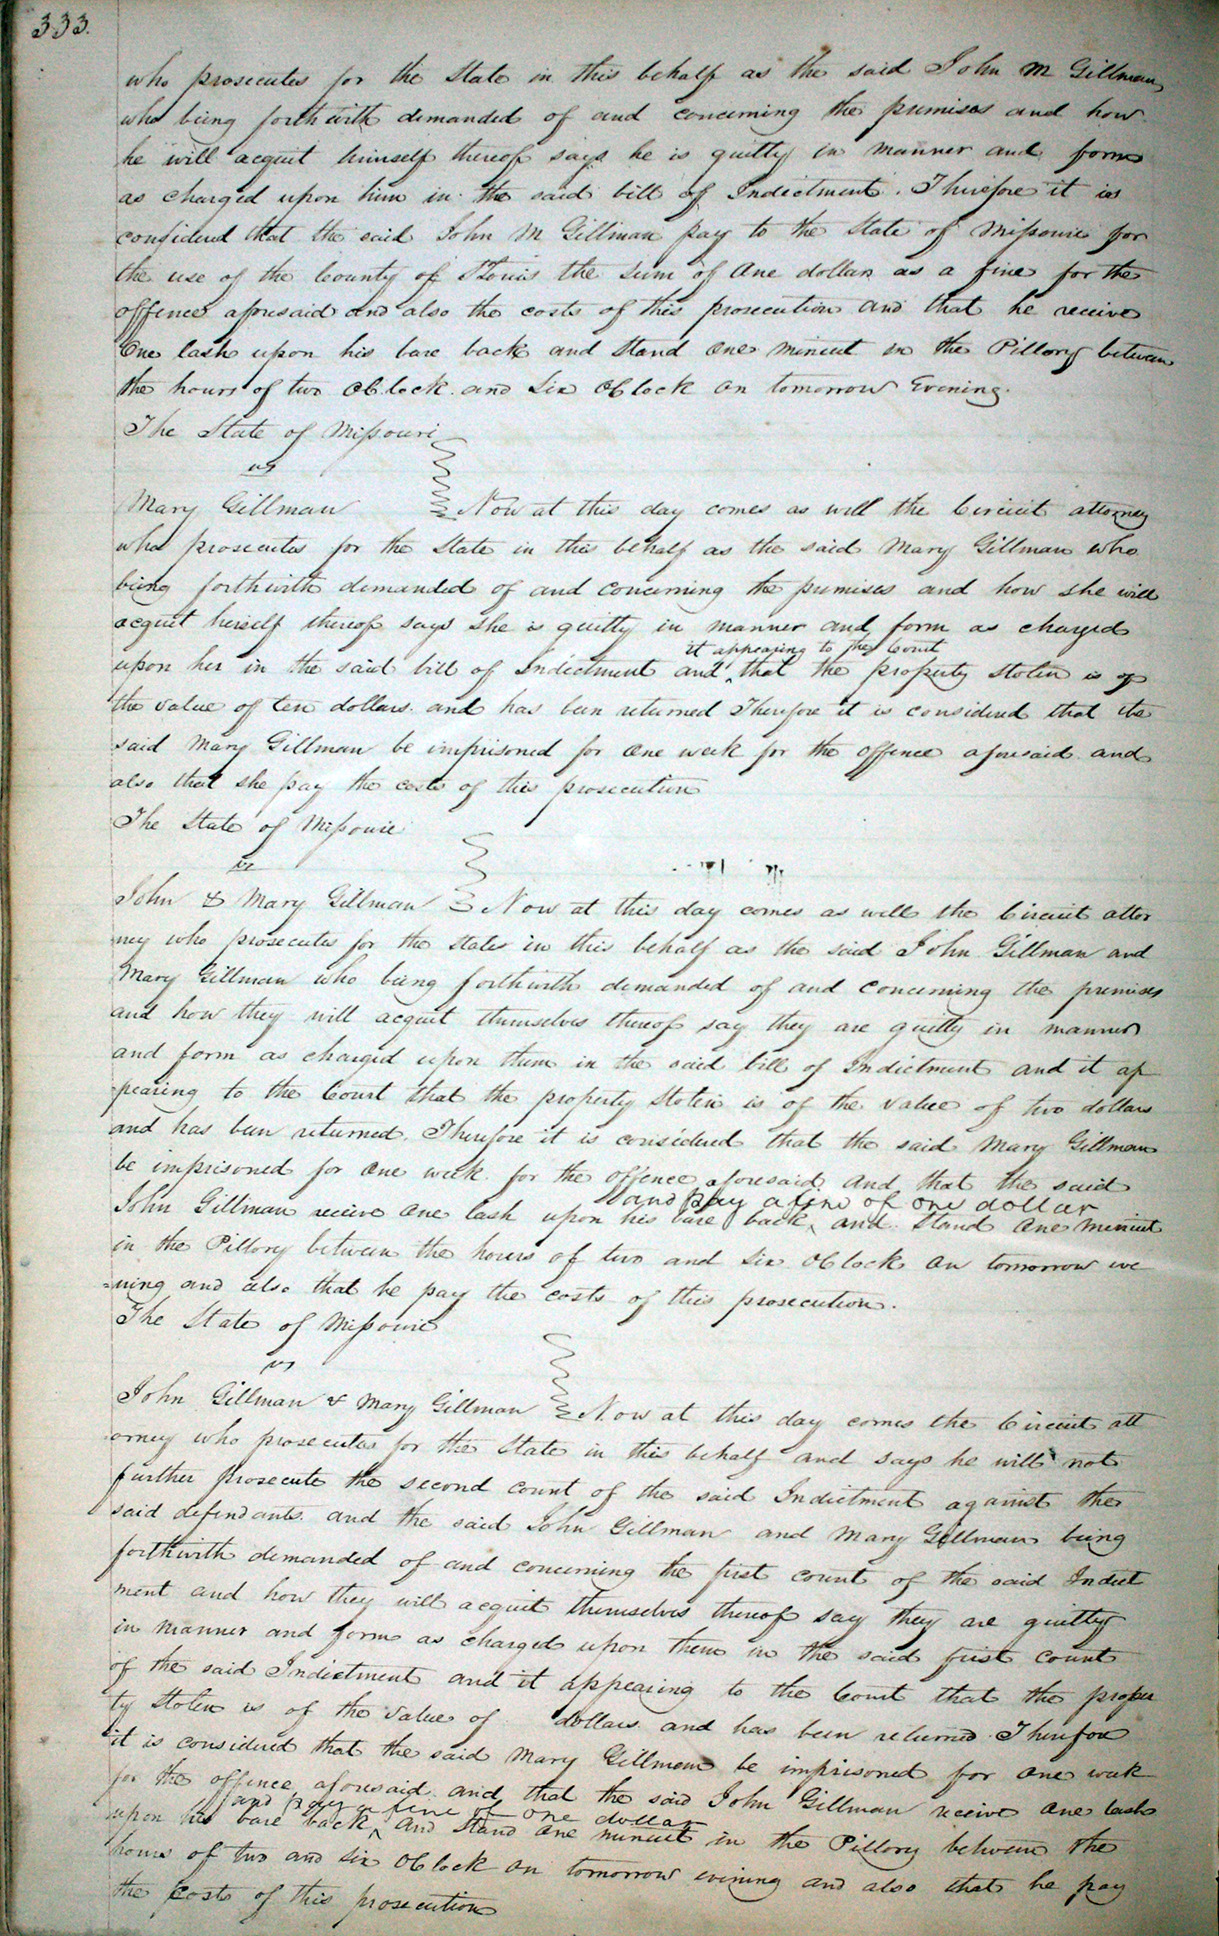 333.
who prosecutes for the State in this behalf as the said John M Gillman,
who being forthwith demanded of and concerning the premises and how
he will acquit himself thereof says he is guilty in manner and form
as charged upon him in the said bill of Indictment. Therefore it is
considered that the said John M Gillman pay to the State of Missouri for
the use of the County of St Louis the sum of One dollar as a fine for the
offence aforesaid and also the costs of this prosecution and that he receive
One lash upon his bare back and Stand one minuit in the Pillory between
the hours of two OClock and Six OClock on tomorrow Evening.
The State of Missouri
vs
Mary Gillman Now at this day comes as well the Circuit attorney
who prosecutes for the State in this behalf as the said Mary Gillman who
being forthwith demanded of and concerning the premises and how she will
acquit herself thereof says she is guilty in manner and form as charged
it appearing to the Court
upon her in the said bill of Indictment and ^ that the property stolen is of
the value of ten dollars and has been returned Therefore it is considered that the
said Mary Gillman be imprisoned for one week for the offence aforesaid and
also that she pay the costs of this prosecution
The State of Missouri
vs
John & Mary Gillman Now at this day comes as well the Circuit attor
ney who prosecutes for the state in this behalf as the said John Gillman and
Mary Gillman who being forthwith demanded of and concerning the premises
and how they will acquit themselves thereof say they are guilty in manner
and form as charged upon them in the said bill of Indictment and it ap
pearing to the Court that the property stolen is of the value of two dollars
and has been returned. Therefore it is considered that the said Mary Gillman
be imprisoned for one week for the offence aforesaid and that the said
and pay a fine of one dollar
John Gillman receive one lash upon his bare back ^ and Stand one minuit
in the Pillory between the hours of two and Six OClock on tomorrow eve
=ning and also that he pay the costs of this prosecution.
The State of Missouri
vs
John Gillman & Mary Gillman Now at this day comes the Circuit att
orney who prosecutes for the State in this behalf and says he will not
further prosecute the second count of the said Indictment against the
said defendants and the said John Gillman and Mary Gillman being
forthwith demanded of and concerning the first count of the said Indict
ment and how they will acquit themselves thereof say they are guilty
in manner and form as charged upon them in the said first count
of the said Indictment and it appearing to the Court that the proper
ty stolen is of the value of dollars and has been returned Therefore
it is considered that the said Mary Gillman be imprisoned for one week
for the offence aforesaid and that the said John Gillman receive one lash
and pay a fine of one dollar
upon his bare back ^ and Stand one minuit in the Pillory between the
hours of two and six OClock on tomorrow evining and also that he pay
the costs of this prosecution